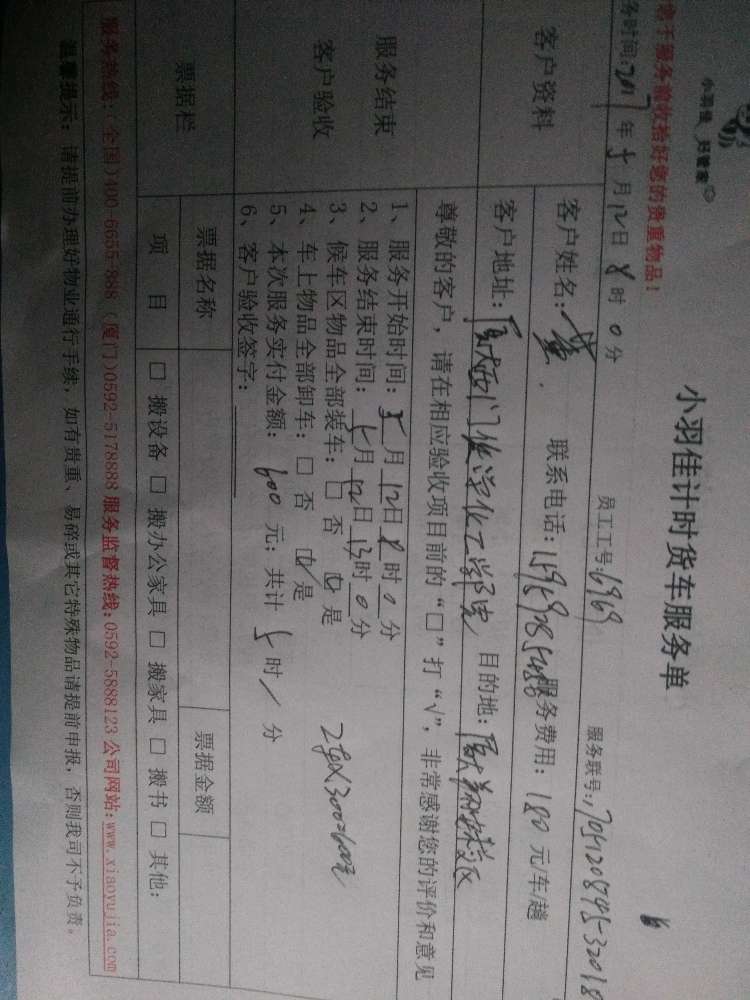 小羽佳 好管家
小羽佳计时货车服务单
服务前收拾好您的贵重物品!
务时间:2017年5月12日8时0分 员工工号:6969 服务联号:
客户资料
客户姓名: 联系电话: 服务费用:180元/车/趟
客户地址: 目的地:
服务结束
客户验收
尊敬的客户,请在相应验收项目前的“□”打“√”,非常感谢您的评价和意见
1、服务开始时间:5月12日8时0分
2、服务结束时间:5月12日13时0分
3、候车区物品全部装车:□否 ☑是
4、车上物品全部卸车:□否 ☑是
5、本次服务实付金额:600元;共计5时/分
6、客户验收签字:
票据栏
票据名称 票据金额
项 目 □搬设备 □搬办公家具 □搬家具 □搬书 □其他:
服务热线:(全国)400-6655-888 (厦门)0592-5178888 服务监督热线:0592-5888123 公司网站:www.xiaoyujia.com
温馨提示:请提前办理好物业通行手续,如有贵重、易碎或其它特殊物品请提前申报,否则我司不予负责。